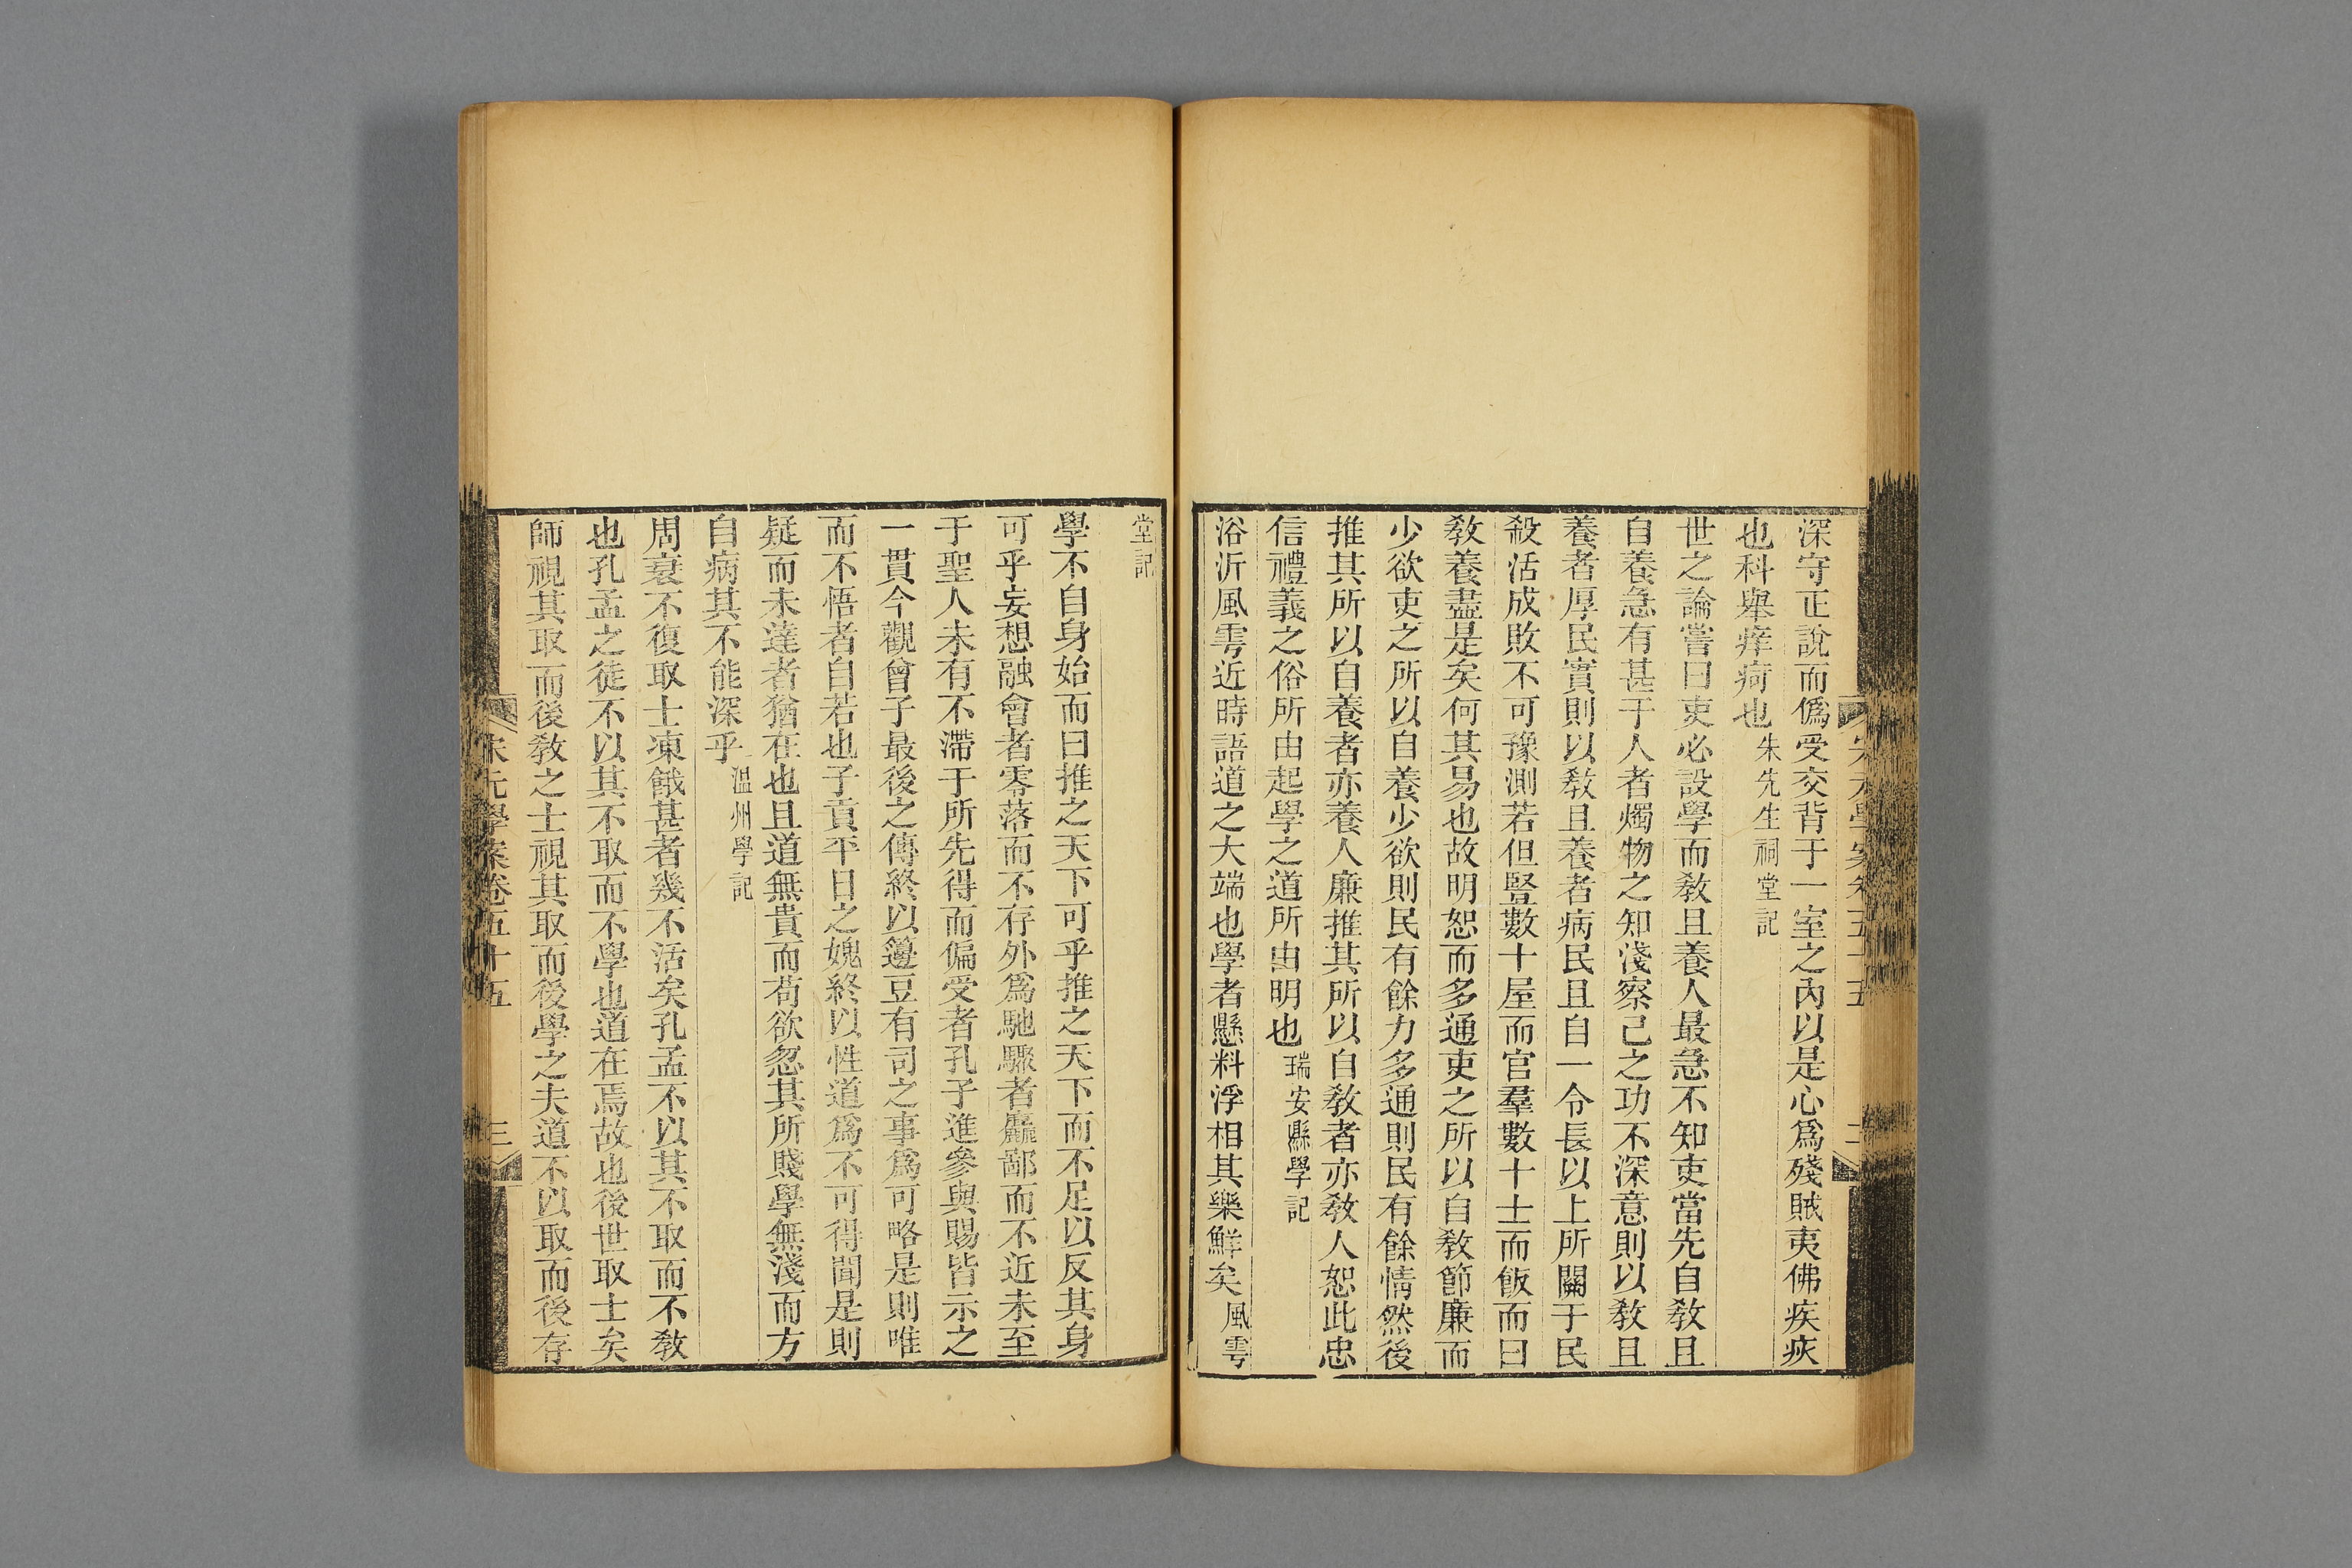 深守正說而僞受交背于一室之內以是心爲殘賊夷佛疾疢
也科舉痒疴也朱先生祠堂記
世之論嘗曰吏必設學而敎且養人最急不知吏當先自敎且
自養急有甚于人者燭物之知淺察己之功不深意則以敎且
養者厚民實則以敎且養者病民且自一令長以上所關于民
殺活成敗不可豫測若但豎數十屋而官羣數十士而飯而曰
敎養盡是矣何其易也故明恕而多通吏之所以自敎節廉而
少欲吏之所以自養少欲則民有餘力多通則民有餘情然後
推其所以自養者亦養人廉推其所以自敎者亦敎人恕此忠
信禮義之俗所由起學之道所由明也瑞安縣學記
浴沂風雩近時語道之大端也學者懸料浮相其樂鮮矣風雩
堂記
學不自身始而曰推之天下可乎推之天下而不足以反其身
可乎妄想融會者零落而不存外爲馳驟者麤鄙而不近未至
于聖人未有不滯于所先得而偏受者孔子進參與賜皆示之
一貫今觀曾子最後之傳終以籩豆有司之事爲可略是則唯
而不悟者自若也子貢平日之媿終以性道爲不可得聞是則
疑而未達者猶在也且道無貴而苟欲忽其所賤學無淺而方
自病其不能深乎溫州學記
周衰不復取士凍餓甚者幾不活矣孔孟不以其不取而不敎
也孔孟之徒不以其不取而不學也道在焉故也後世取士矣
師視其取而後敎之士視其取而後學之夫道不以取而後存
宋元學案卷五十五
三